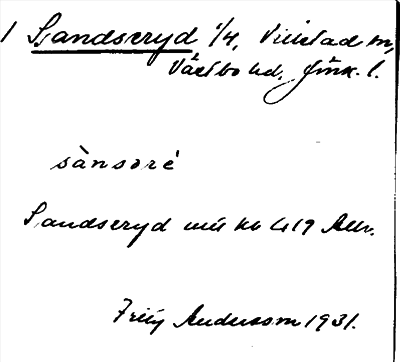 1 Sandseryd 1/4, Villstad sn,
Västbo hd, Jönk. l.
sànsəré
Sandseryd mtl kb 419 Allm.
Fritz Andersson 1931.